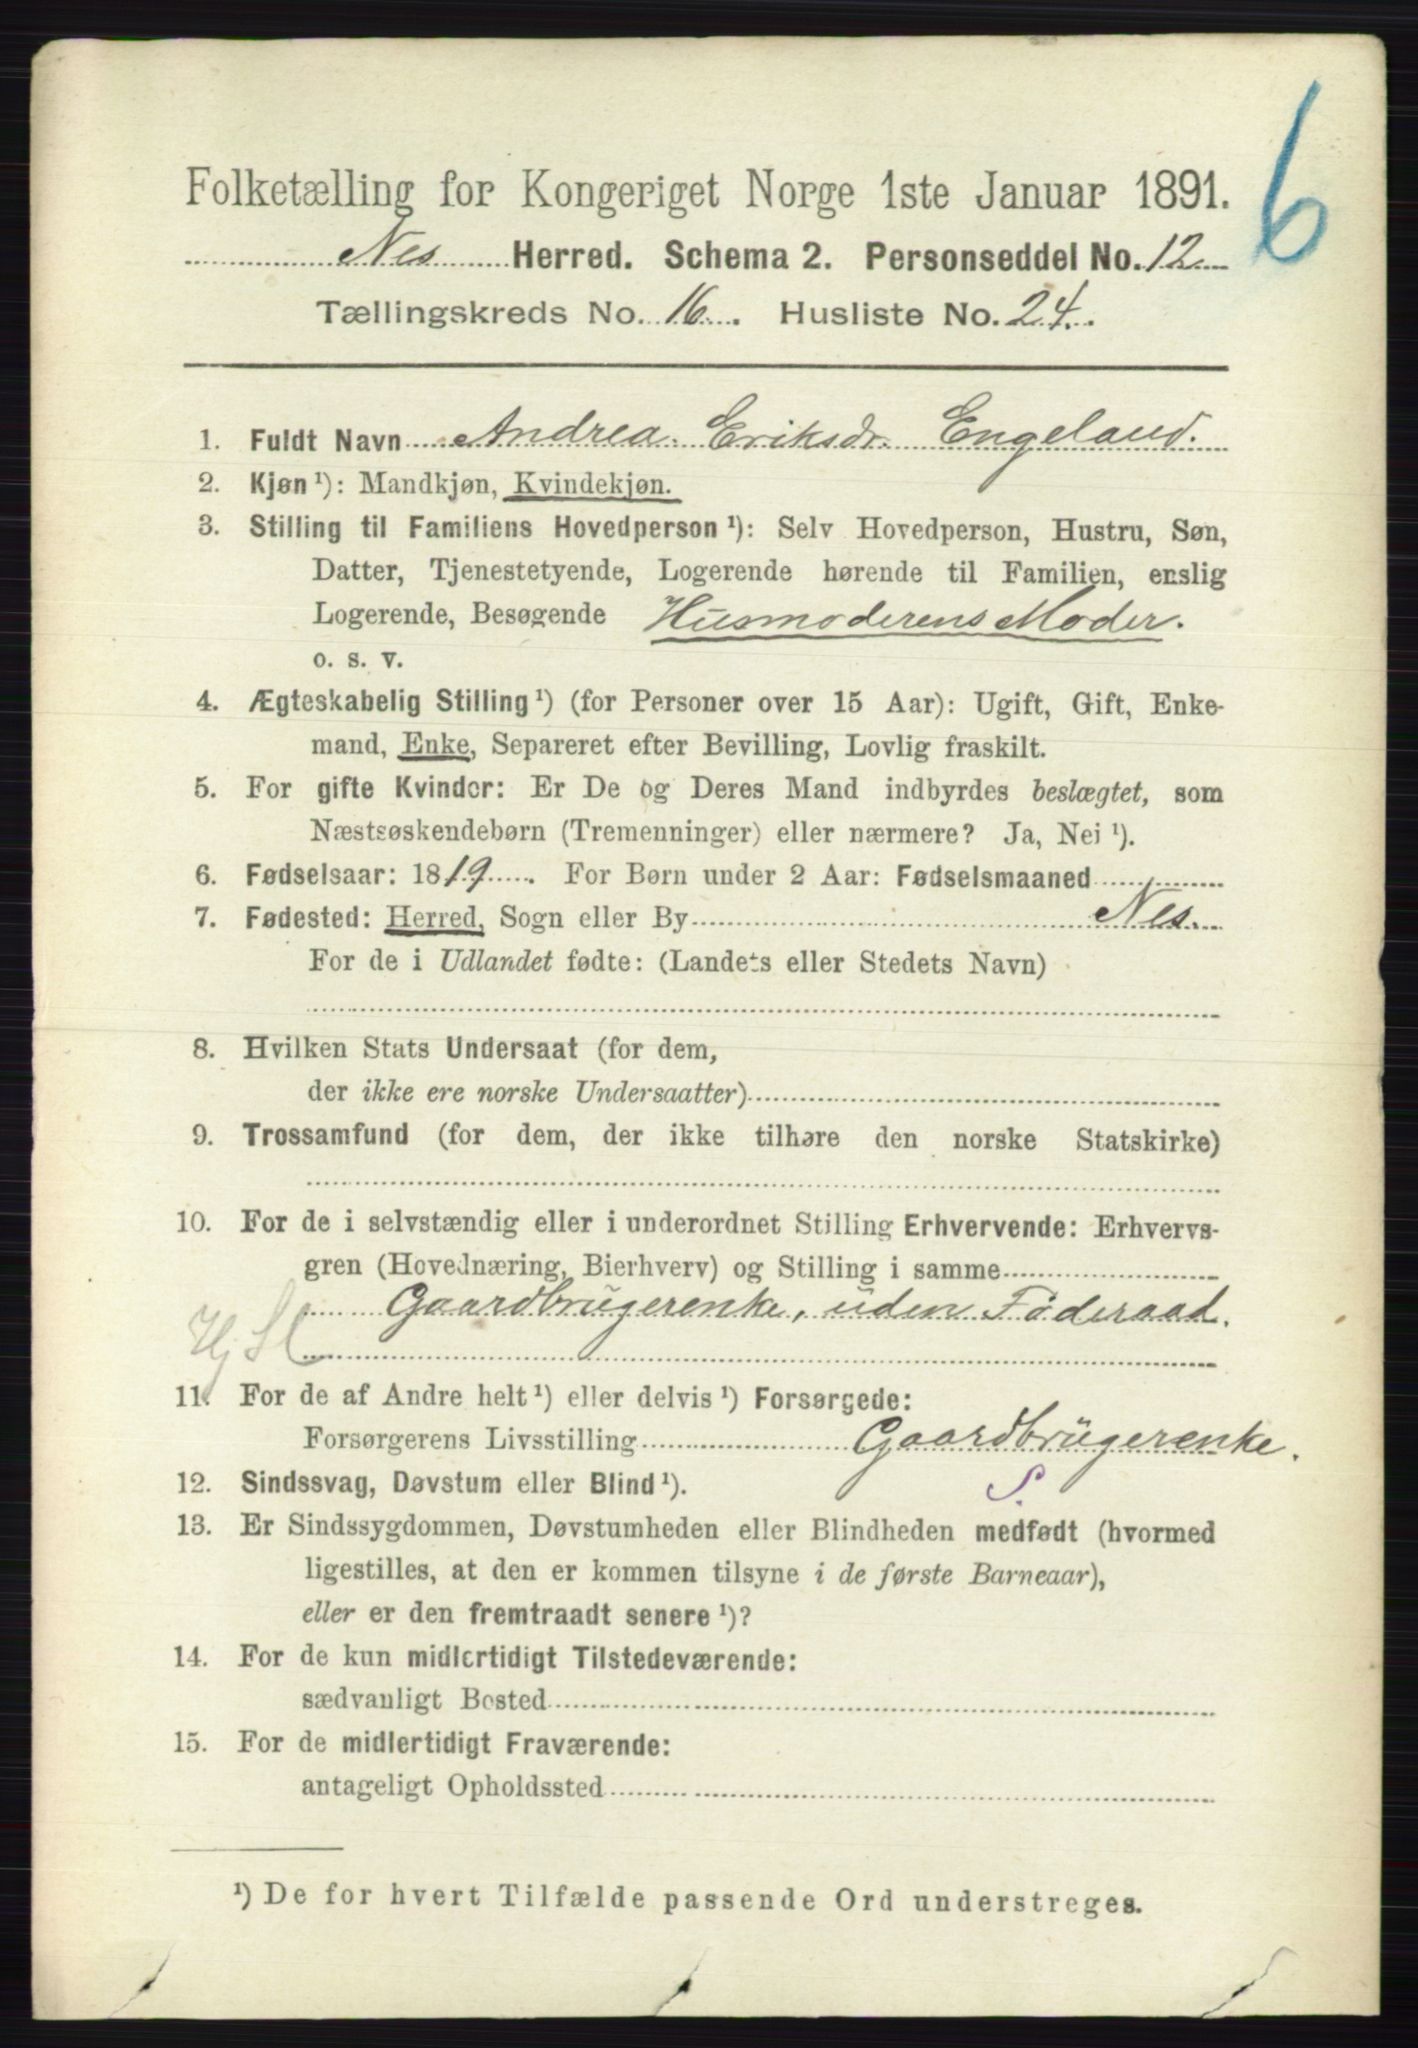 6
Folketælling for Kongeriget Norge 1ste Januar 1891.
Nes Herred. Schema 2. Personseddel No. 12
Tællingskreds No. 16. Husliste No. 24.
1. Fuldt Navn Andrea Eriksdr. Engeland.
2. Kjøn ¹): Mandkjøn, Kvindekjøn.
3. Stilling til Familiens Hovedperson ¹): Selv Hovedperson, Hustru, Søn,
Datter, Tjenestetyende, Logerende hørende til Familien, enslig
Logerende, Besøgende Husmoderens Moder.
o. s. v.
4. Ægteskabelig Stilling ¹) (for Personer over 15 Aar): Ugift, Gift, Enke-
mand, Enke, Separeret efter Bevilling, Lovlig fraskilt.
5. For gifte Kvinder: Er De og Deres Mand indbyrdes beslægtet, som
Næstsøskendebørn (Tremenninger) eller nærmere? Ja, Nei ¹).
6. Fødselsaar: 1819. For Børn under 2 Aar: Fødselsmaaned
7. Fødested: Herred, Sogn eller By Nes.
For de i Udlandet fødte: (Landets eller Stedets Navn)
8. Hvilken Stats Undersaat (for dem,
der ikke ere norske Undersaatter)
9. Trossamfund (for dem, der ikke tilhøre den norske Statskirke)
10. For de i selvstændig eller i underordnet Stilling Erhvervende: Erhvervs-
gren (Hovednæring, Bierhverv) og Stilling i samme
Gaardbrugerenke, uden Føderaad.
Hj Sl
11. For de af Andre helt ¹) eller delvis ¹) Forsørgede:
Forsørgerens Livsstilling Gaardbrugerenke.
12. Sindssvag, Døvstum eller Blind ¹). S.
13. Er Sindssygdommen, Døvstumheden eller Blindheden medfødt (hvormed
ligestilles, at den er kommen tilsyne i de første Barneaar),
eller er den fremtraadt senere ¹)?
14. For de kun midlertidigt Tilstedeværende:
sædvanligt Bosted
15. For de midlertidigt Fraværende:
antageligt Opholdssted
¹) De for hvert Tilfælde passende Ord understreges.